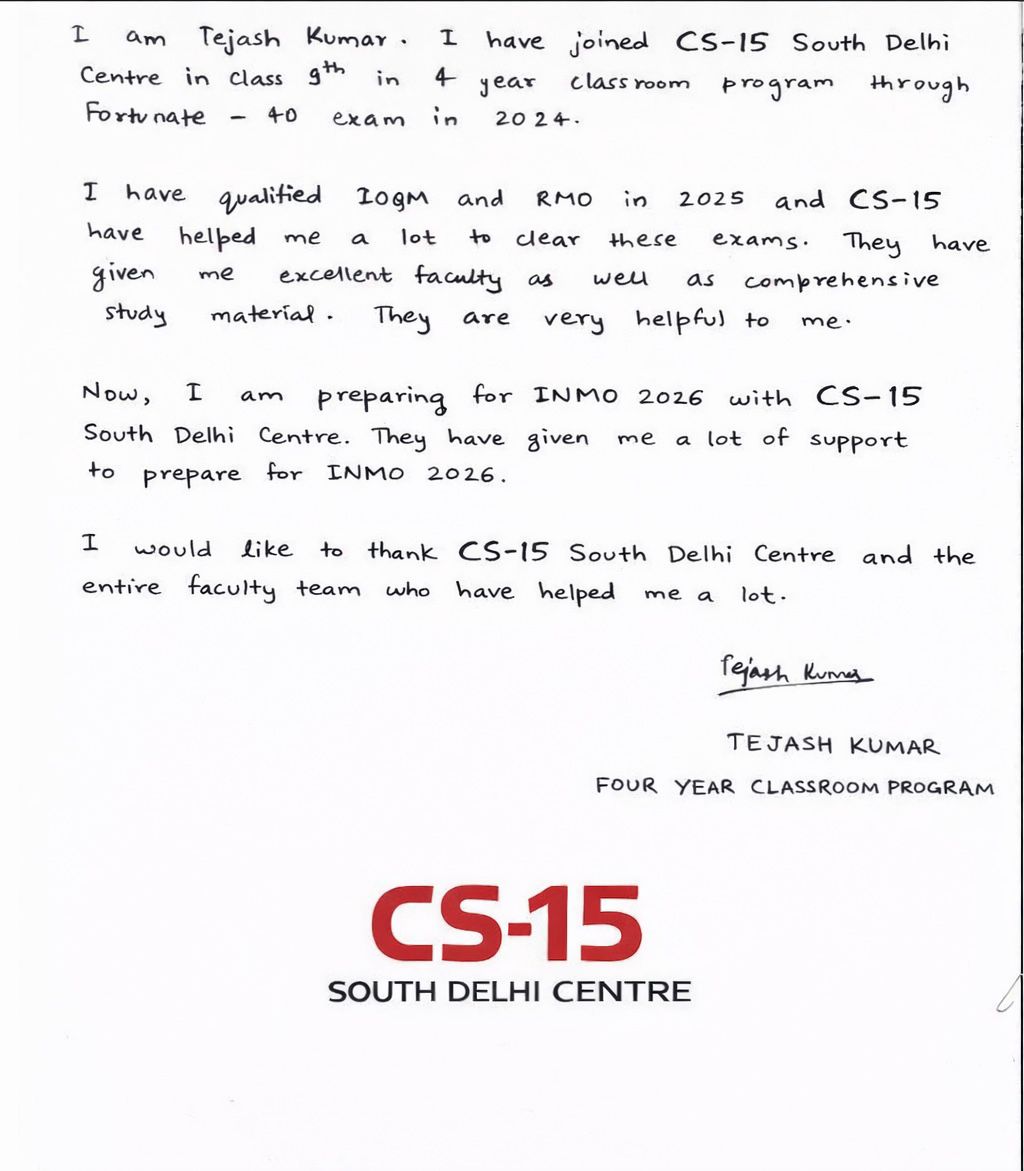 I am Tejash Kumar. I have joined CS-15 South Delhi
Centre in class 9th in 4 year classroom program through
Fortunate - 40 exam in 2024.
I have qualified IOQM and RMO in 2025 and CS-15
have helped me a lot to clear these exams. They have
given me excellent faculty as well as comprehensive
study material. They are very helpful to me.
Now, I am preparing for INMO 2026 with CS-15
South Delhi Centre. They have given me a lot of support
to prepare for INMO 2026.
I would like to thank CS-15 South Delhi Centre and the
entire faculty team who have helped me a lot.
Tejash Kumar
TEJASH KUMAR
FOUR YEAR CLASSROOM PROGRAM
CS-15
SOUTH DELHI CENTRE